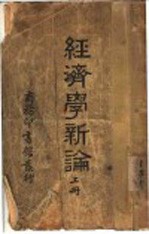 經濟學新論
上冊
商務印書館發行